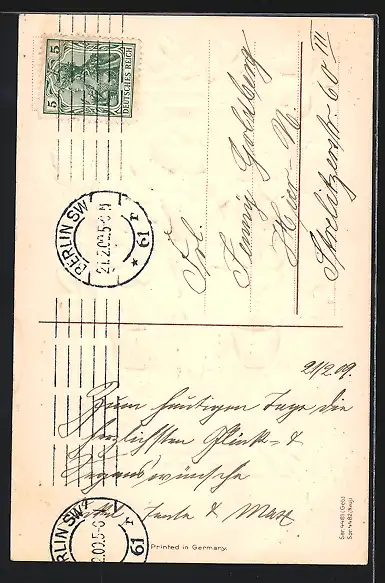 5 DEUTSCHES REICH 5
BERLIN SW
21.2.09.5-6 N
* 61 r
Frl.
Fanny Goldberg
Hier-N.
Strelitzerstr. 60 III
21/2.09.
Zum heutigen Tage die
herzlichsten Glück- &
Segenswünsche
& Max
BERLIN SW
.2.09.5-6
61 r
Printed in Germany.
Ser. 4481 (Geb.)
Ser. 4482 (Neuj.)